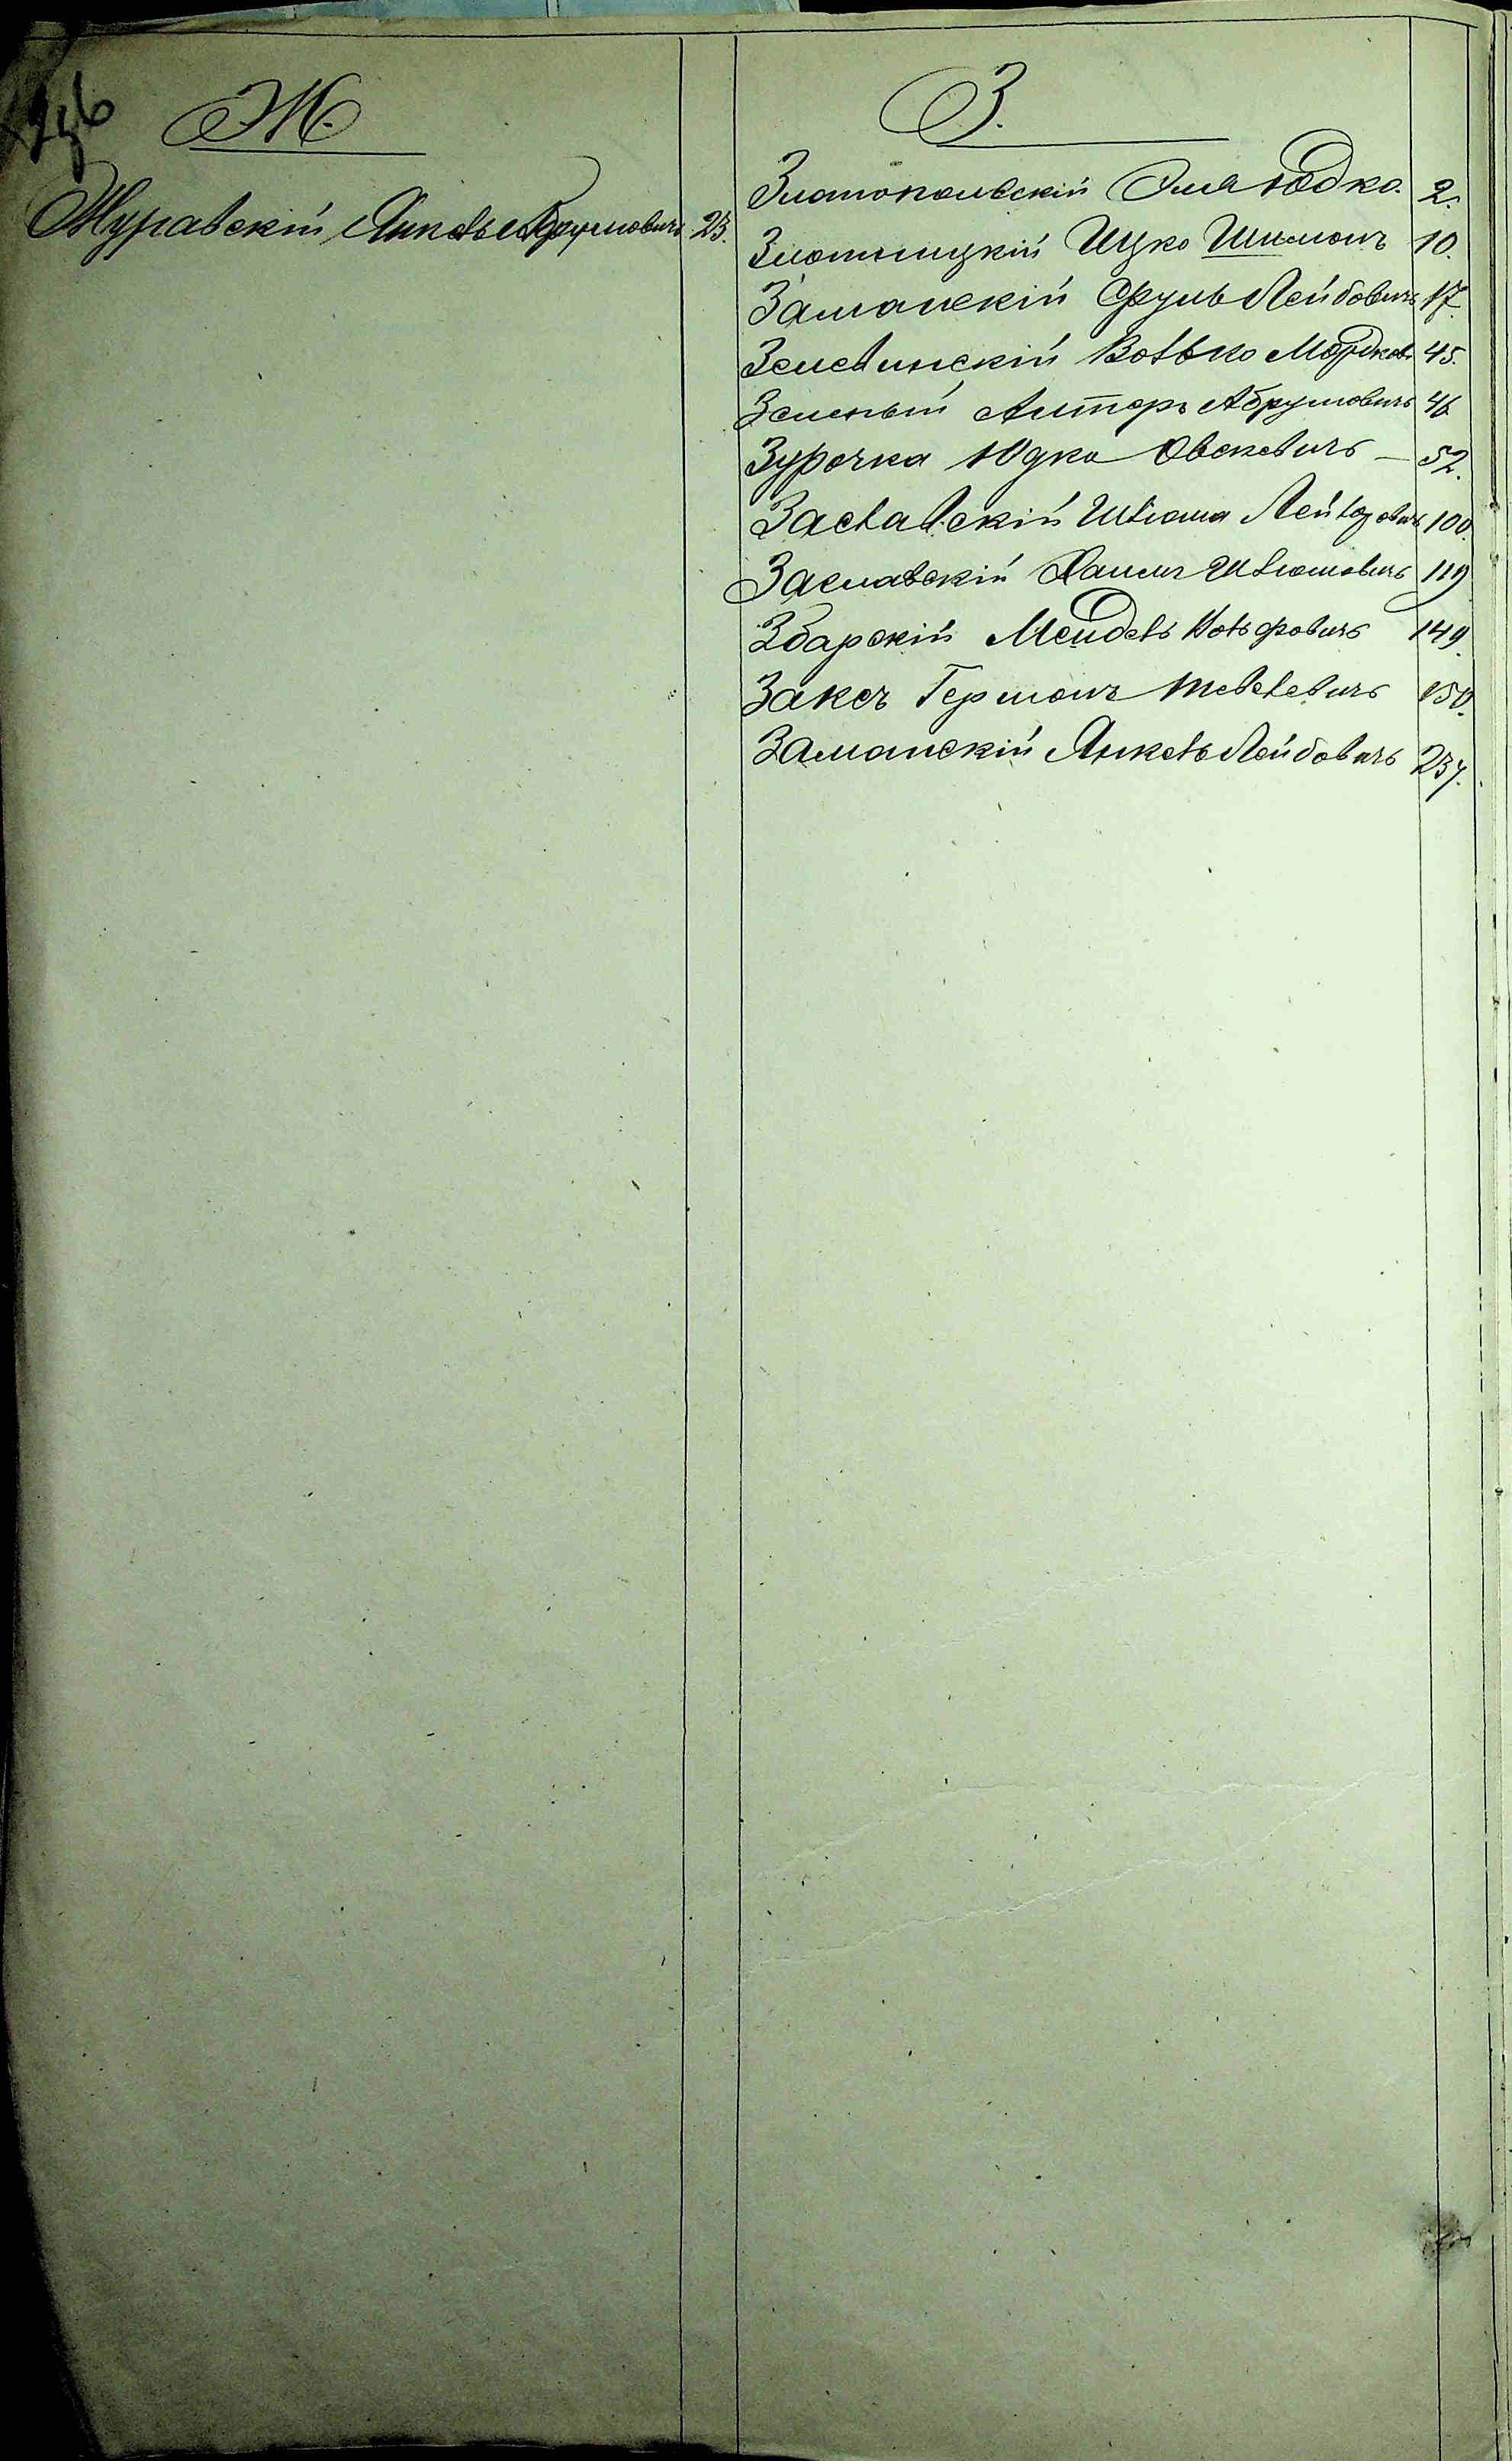 Ж.
Журавскій Янкель Абрумовичъ 23.
З.
Златопольскій Эля Юдко. 2.
Злотницкій Ицко Шимонъ 10.
Заманскій Сруль Лейбовичъ 17.
Зелевинскій Волько Мордков. 45.
Зеленый Алтеръ Абрумовичъ 46
Зурочка Юдко Овсеевичъ — 52.
Заславскій Шлома Лейзоровичъ 100.
Заславскій Хаимъ Шлиомовичъ 119
Збарскій Мендель Вольфовичъ 149.
Заксъ Германъ Тевелевичъ 150.
Заманскій Янкель Лейбовичъ 237.